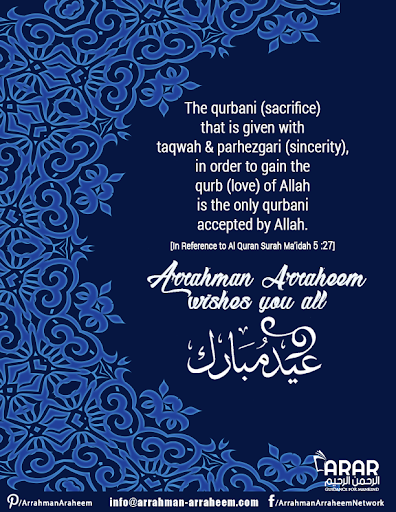 The qurbani (sacrifice)
that is given with
taqwah & parhezgari (sincerity),
in order to gain the
qurb (love) of Allah
is the only qurbani
accepted by Allah.
[In Reference to Al Quran Surah Ma'idah 5 :27]
Arrahman Arraheem
wishes you all
عيد مُبارك
ARAR
الرحمن الرحيم
GUIDANCE FOR MANKIND
/ArrahmanAraheem info@arrahman-arraheem.com /ArrahmanArraheemNetwork